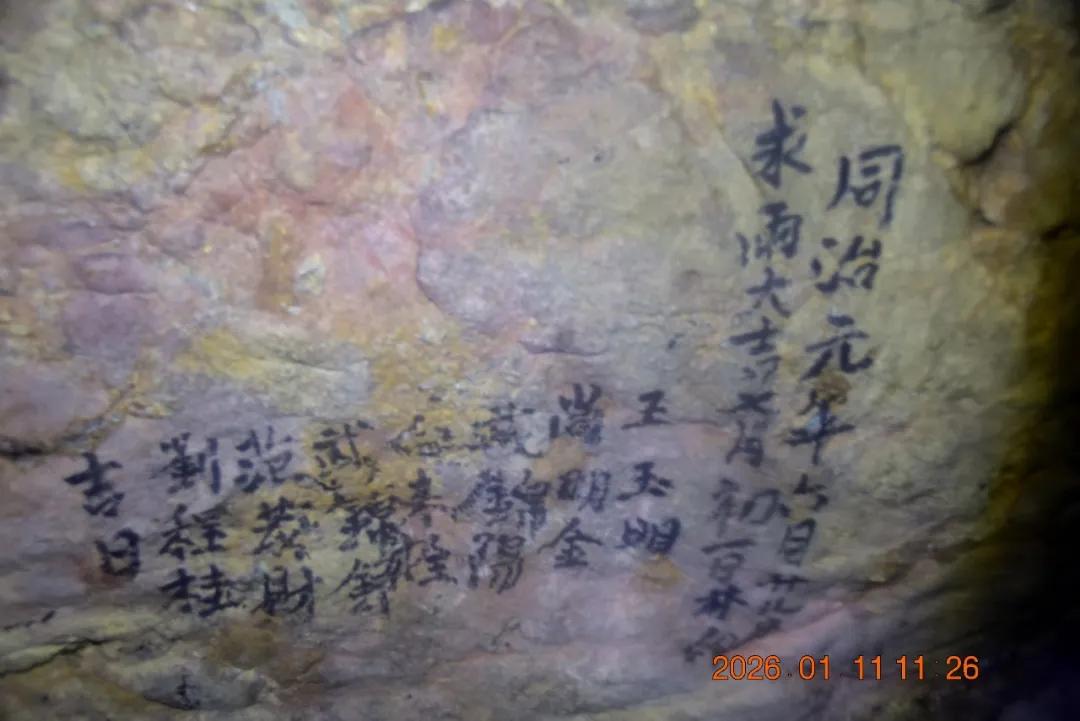 同治元年六月廿
求雨大吉七月初一日林
王玉明
尚明金
武錦陽
武錦
范發財
劉程桂
吉日
2026.01.11 11:26